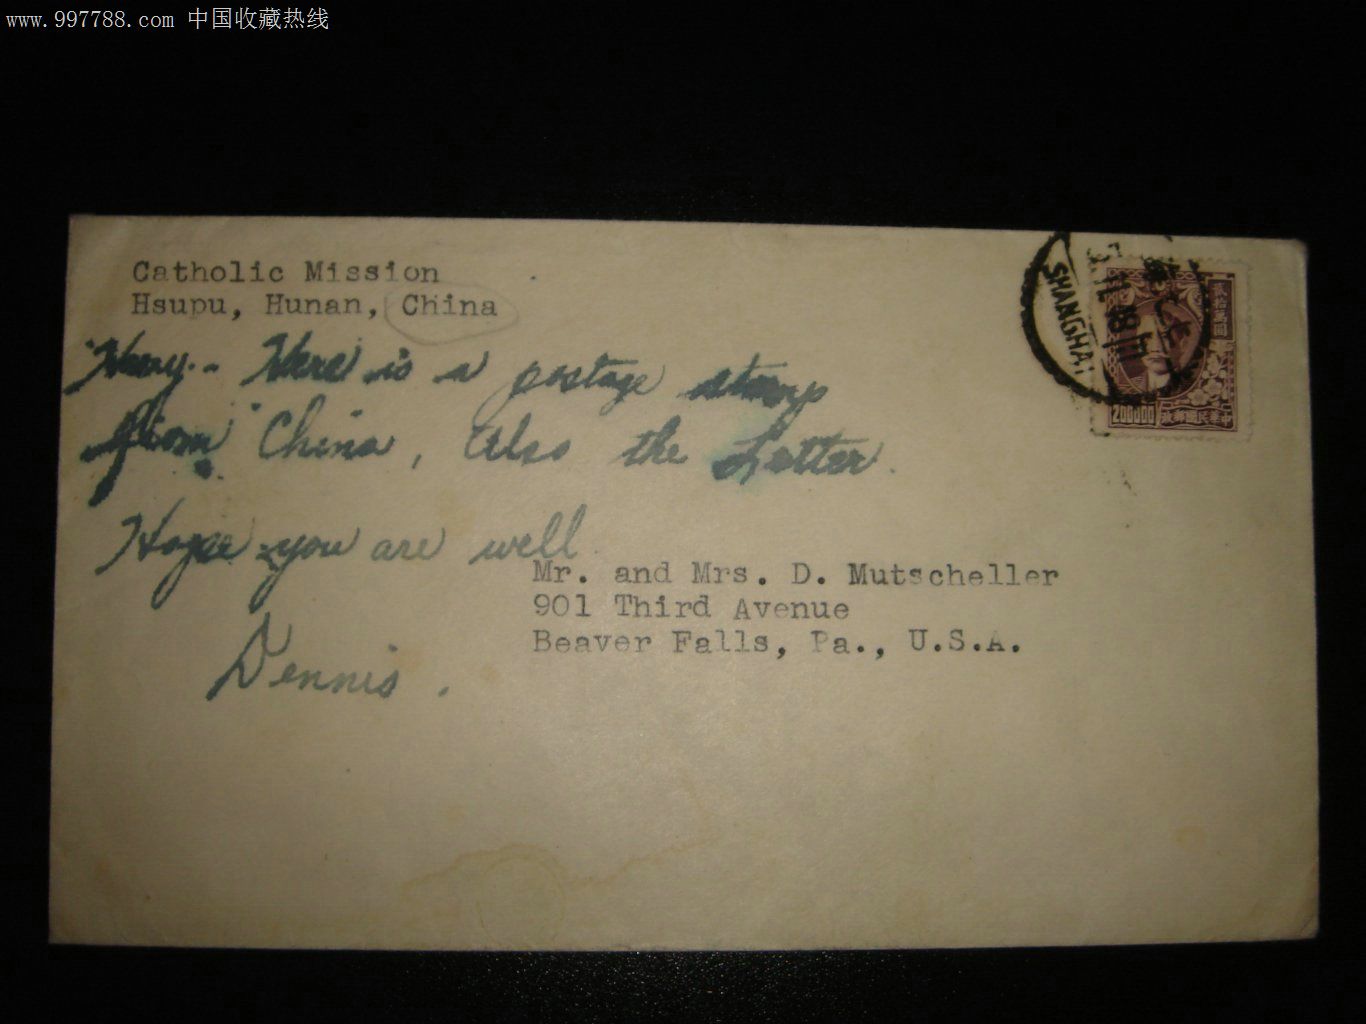 www.997788.com 中国收藏热线
Catholic Mission
Hsupu, Hunan, China
Here is a postage stamp
from China, Also the Letter.
Hope you are well
Dennis.
Mr. and Mrs. D. Mutscheller
901 Third Avenue
Beaver Falls, Pa., U.S.A.
SHANGHAI
貳拾萬圓
200000